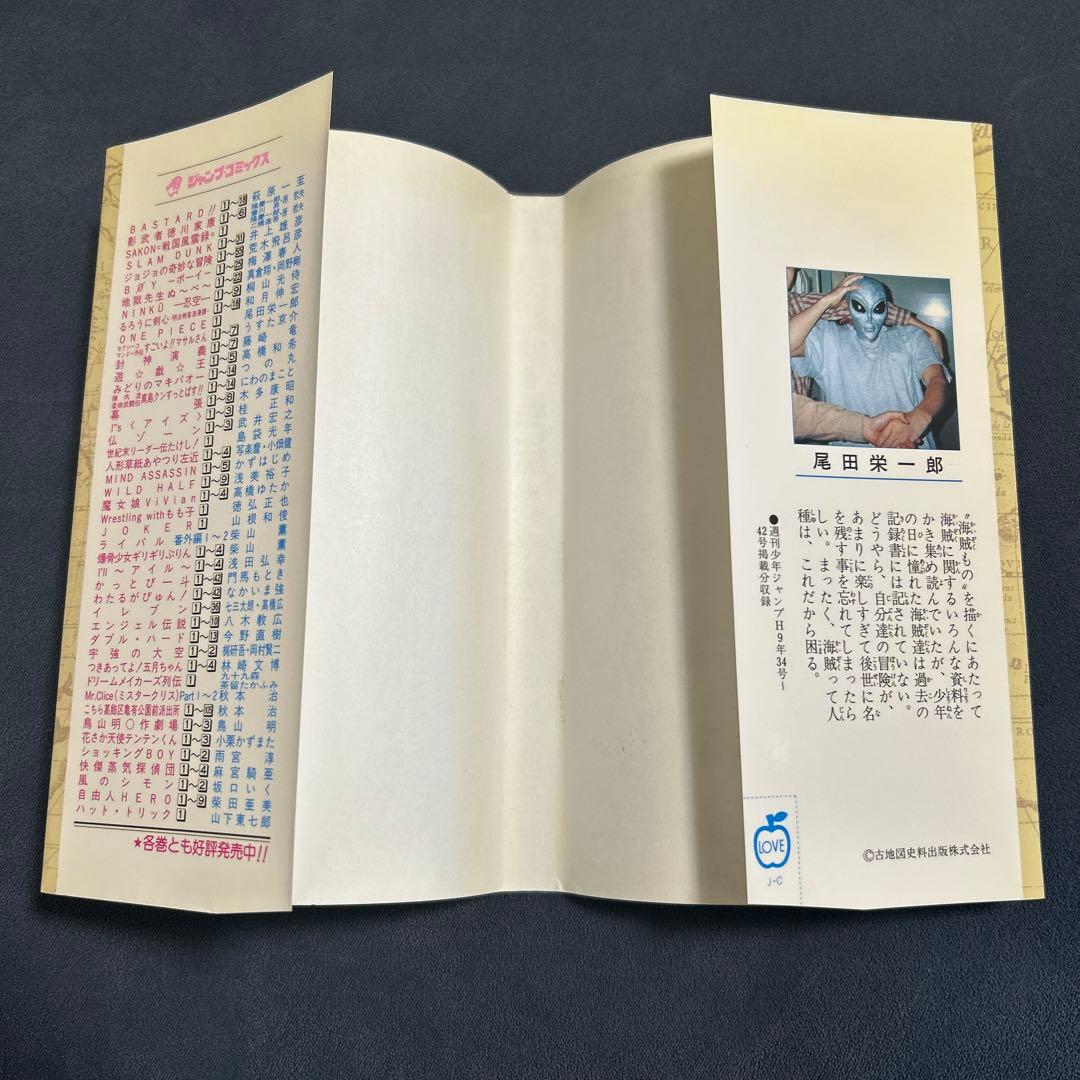 ジャンプ・コミックス
BASTARD!! 1~18 萩原一至
影武者徳川家康 1~6 隆慶一郎・原哲夫
SAKON=戦国風雲録= 1 原哲夫
SLAM DUNK 1~31 井上雄彦
ジョジョの奇妙な冒険 荒木飛呂彦
BØY―ボーイ― 梅澤春人
地獄先生ぬ~べ~ 真倉翔・岡野剛
NINKŪ―忍空― 1~9 桐山光侍
るろうに剣心-明治剣客浪漫譚- 和月伸宏
ONE PIECE 1 尾田栄一郎
セクシーコマンドー外伝 すごいよ!!マサルさん 1~7 うすた京介
封神演義 1~7 藤崎竜
遊☆戯☆王 1~5 高橋和希
みどりのマキバオー 1~14 つの丸
陣内流柔術武闘伝真島クンすっとばす!! 1~14 にわのまこと
幕張 1~8 木多康昭
I"s〈アイズ〉 1~3 桂正和
仏ゾーン 1~3 武井宏之
世紀末リーダー伝たけし! 1 島袋光年
人形草紙あやつり左近 1~4 写楽麿・小畑健
MIND ASSASSIN 1~5 かずはじめ
WILD HALF 1~9 浅美裕子
魔女娘ViVian 1~4 高橋ゆたか
Wrestling withもも子 1 徳弘正也
JOKER 1 山根和俊
ライバル 番外編1~2 柴山薫
爆骨少女ギリギリぷりん 1~4 柴山薫
I'll~アイル~ 1~4 浅田弘幸
かっとび一斗 門馬もとき
わたるがぴゅん! 1~42 なかいま強
イレブン 七三太朗・高橋広
エンジェル伝説 1~10 八木教広
ダブル・ハード 1~13 今野直樹
宇強の大空 1~2 梶研吾・岡村賢二
つきあってよ!五月ちゃん 1~4 林崎文博
ドリームメイカーズ列伝 1 九十九森 茶留たかふみ
Mr.Clice(ミスタークリス) Part 1~2 秋本治
こちら葛飾区亀有公園前派出所 秋本治
鳥山明○作劇場 1~3 鳥山明
花さか天使テンテンくん 1~3 小栗かずまた
ショッキングBOY 1~2 雨宮淳
快傑蒸気探偵団 1~4 麻宮騎亜
風のシモン 1~2 坂口いく
自由人HERO 1~9 柴田亜美
ハット・トリック 1 山下東七郎
★各巻とも好評発売中!!
尾田栄一郎
“海賊もの”を描くにあたって
海賊に関するいろんな資料を
かき集め読んでいたが、少年
の日に憧れた海賊達は過去の
記録書には記されていない。
どうやら、自分達の冒険が、
あまりに楽しすぎて後世に名
を残す事を忘れてしまったら
しい。まったく、海賊って人
種は、これだから困る。
●週刊少年ジャンプH9年34号~
42号掲載分収録
LOVE
J・C
©古地図史料出版株式会社